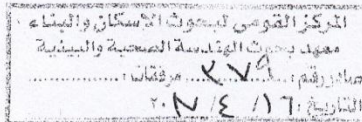 المركز القومى لبحوث الإسكان والبناء
معهد بحوث الهندسة الصحية والبيئية
صادر رقم : ٣٧٩ مرفقات :
التاريخ : ١٦ / ٤ / ٢٠١٧